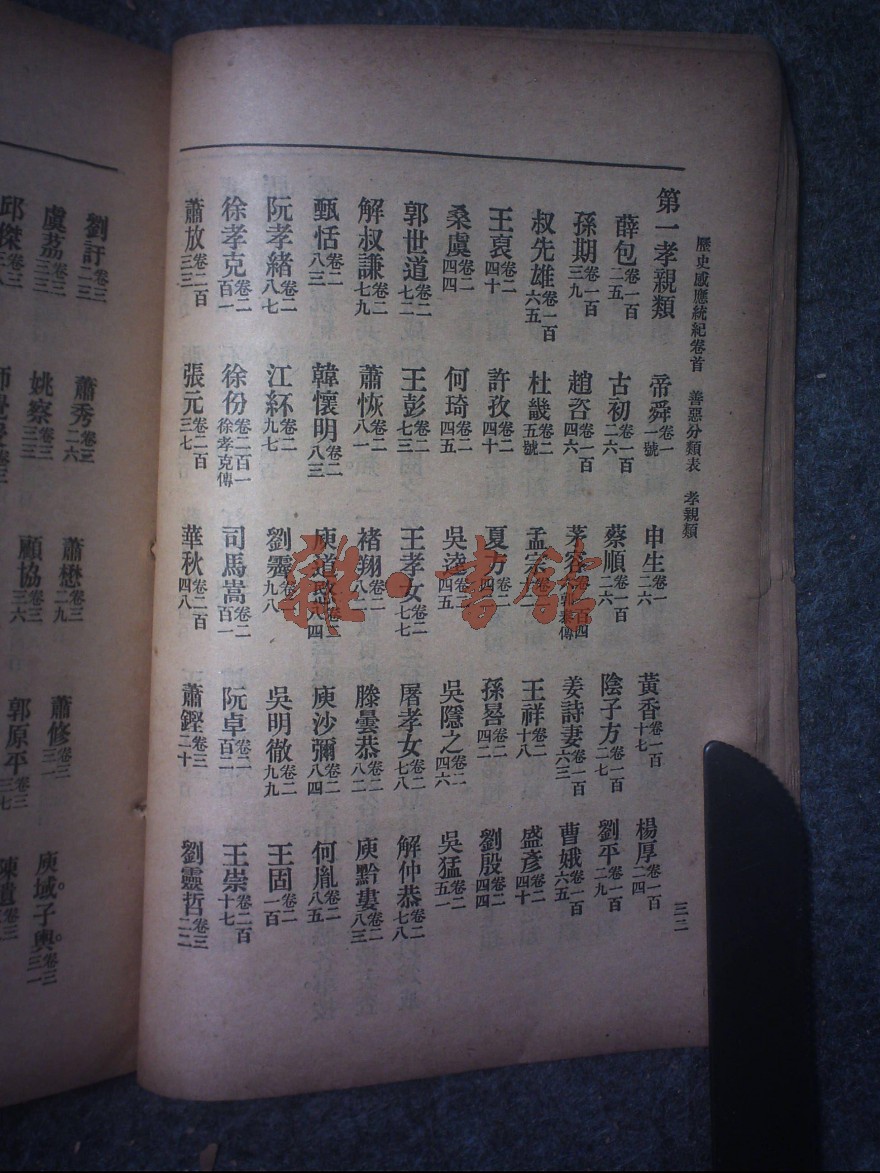 歷史感應統紀卷首 善惡分類表 孝親類 三二
第一孝親類 帝舜卷一一號 申生卷一二六 黃香卷一百十七 楊厚卷一百二四
薛包卷一百二五 古初卷一百二六 蔡順卷一百二六 陰子方卷一百二七 劉平卷一百二九
孫期卷一百三九 趙咨卷一百四六 茅容卷一百四六郭泰傳 姜詩妻卷一百六三 曹娥卷一百六五
叔先雄卷一百六五 杜畿卷二五號 孟宗卷二 王祥卷二十八 盛彥卷二四十
王裒卷二四十 許孜卷二四十 夏方卷二四二 孫晷卷二四二 劉殷卷二四四
桑虞卷二四四 何琦卷二四五 吳逵卷二四五 吳隱之卷二四六 吳猛卷二五一
郭世道卷二七二 王彭卷二七三 王孝女卷二七七 屠孝女卷二七八 解仲恭卷二七八
解叔謙卷二七九 蕭恢卷二八一 褚翔卷二八二 滕曇恭卷二八二 庾黔婁卷二八三
甄恬卷二八三 韓懷明卷二八三 庾道愍卷二八四 庾沙彌卷二八四 何胤卷二八五
阮孝緒卷二八七 江紑卷二九七 劉霽卷二九八 吳明徹卷二九九 王固卷二一百
徐孝克卷二百一 徐份卷二百一徐孝克傳 司馬暠卷二百一 阮卓卷二百二 王崇卷二百十七
蕭放卷二百三三 張元卷二百三七 華秋卷二百四八 蕭鏗卷三二十 劉靈哲卷三二二
劉訏卷三二三 蕭秀卷三二六 蕭懋卷三二九 蕭修卷三三一 庾域。子輿。卷三三一
虞荔卷三三三 姚察卷三三三 顧協卷三三六 郭原平卷三三七 陳遺
邱傑卷三
雜·書館